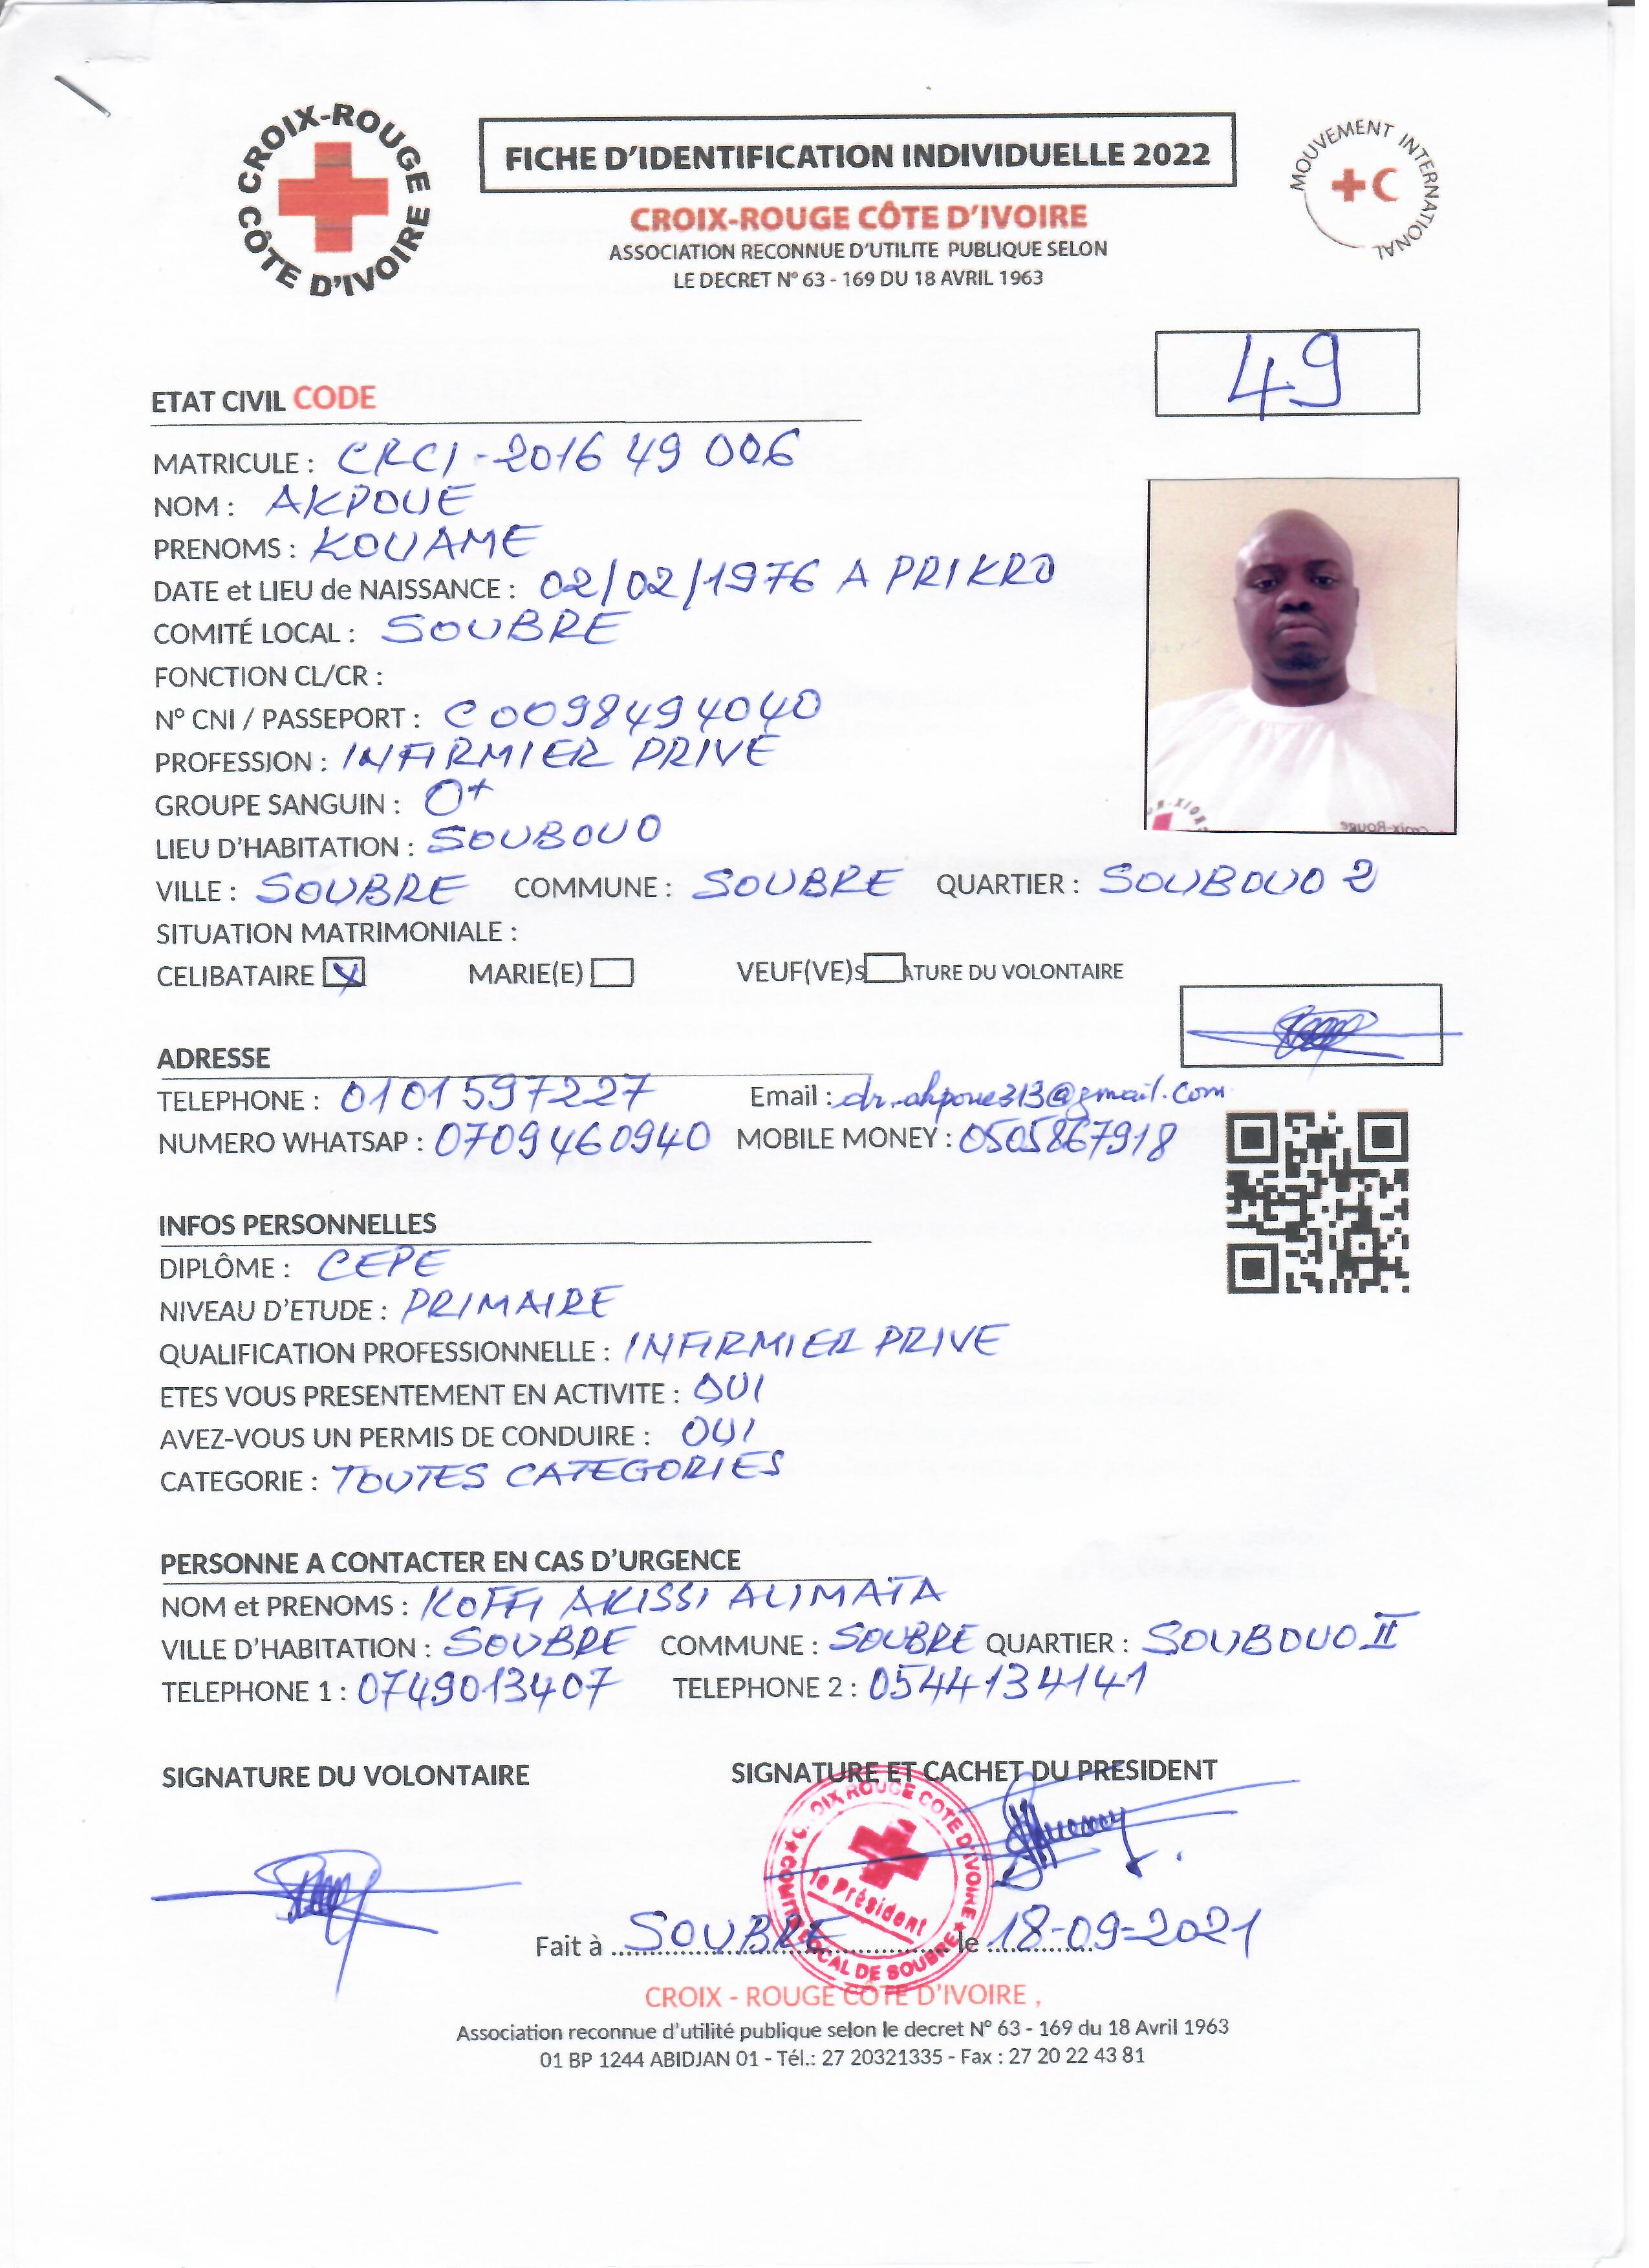 CROIX-ROUGE CÔTE D'IVOIRE
FICHE D'IDENTIFICATION INDIVIDUELLE 2022
MOUVEMENT INTERNATIONAL
CROIX-ROUGE CÔTE D'IVOIRE
ASSOCIATION RECONNUE D'UTILITE PUBLIQUE SELON
LE DECRET N° 63 - 169 DU 18 AVRIL 1963
49
ETAT CIVIL CODE
MATRICULE : CRCI-2016 49 006
NOM : AKPOUE
PRENOMS : KOUAME
DATE et LIEU de NAISSANCE : 02/02/1976 A PRIKRO
COMITÉ LOCAL : SOUBRE
FONCTION CL/CR :
N° CNI / PASSEPORT : C0098494040
PROFESSION : INFIRMIER PRIVE
GROUPE SANGUIN : O+
LIEU D'HABITATION : SOUBOUO
VILLE : SOUBRE COMMUNE : SOUBRE QUARTIER : SOUBOUO 2
SITUATION MATRIMONIALE :
CELIBATAIRE X MARIE(E) VEUF(VE) S ATURE DU VOLONTAIRE
ADRESSE
TELEPHONE : 0101597227 Email : dr.akpoue313@gmail.com
NUMERO WHATSAP : 0709460940 MOBILE MONEY : 0505867918
INFOS PERSONNELLES
DIPLÔME : CEPE
NIVEAU D'ETUDE : PRIMAIRE
QUALIFICATION PROFESSIONNELLE : INFIRMIER PRIVE
ETES VOUS PRESENTEMENT EN ACTIVITE : OUI
AVEZ-VOUS UN PERMIS DE CONDUIRE : OUI
CATEGORIE : TOUTES CATEGORIES
PERSONNE A CONTACTER EN CAS D'URGENCE
NOM et PRENOMS : KOFFI AKISSI ALIMATA
VILLE D'HABITATION : SOUBRE COMMUNE : SOUBRE QUARTIER : SOUBOUO II
TELEPHONE 1 : 0749013407 TELEPHONE 2 : 0544134141
SIGNATURE DU VOLONTAIRE SIGNATURE ET CACHET DU PRESIDENT
CROIX ROUGE COTE D'IVOIRE
le Président
COMITE LOCAL DE SOUBRE
Fait à SOUBRE le 18-09-2021
CROIX - ROUGE CÔTE D'IVOIRE ,
Association reconnue d'utilité publique selon le decret N° 63 - 169 du 18 Avril 1963
01 BP 1244 ABIDJAN 01 - Tél.: 27 20321335 - Fax : 27 20 22 43 81